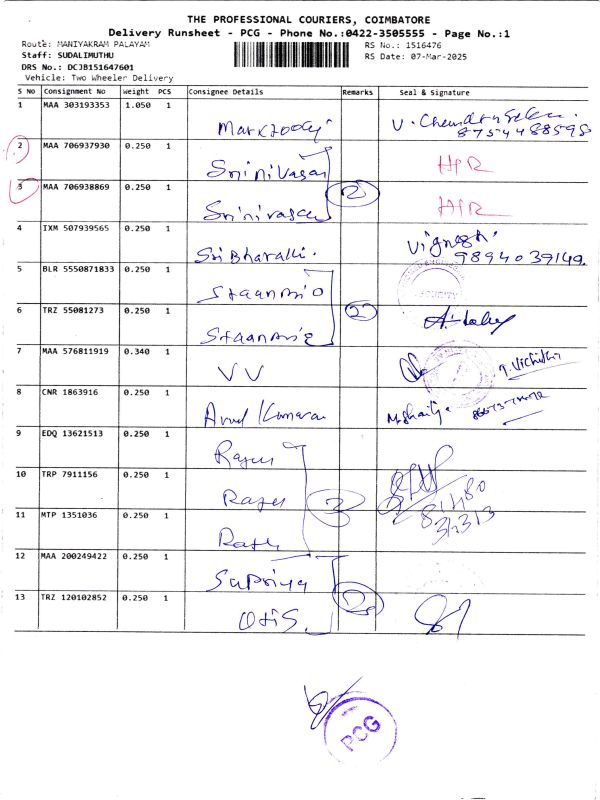 THE PROFESSIONAL COURIERS, COIMBATORE
Delivery Runsheet - PCG - Phone No.:0422-3505555 - Page No.:1
Route: MANIYAKRAM PALAYAM RS No.: 1516476
Staff: SUDALIMUTHU RS Date: 07-Mar-2025
DRS No.: DCJB151647601
Vehicle: Two Wheeler Delivery
S No Consignment No Weight PCS Consignee Details Remarks Seal & Signature
1 MAA 303193353 1.050 1
2 MAA 706937930 0.250 1 Srinivasan
3 MAA 706938869 0.250 1 Srinivasan 2
4 IXM 507939565 0.250 1 Sri Bharathi Vignesh
9894039149
5 BLR 5550871833 0.250 1 SECURITY
6 TRZ 55081273 0.250 1 2
7 MAA 576811919 0.340 1 VV
8 CNR 1863916 0.250 1 Arul Kumaran
9 EDQ 13621513 0.250 1
10 TRP 7911156 0.250 1 3
11 MTP 1351036 0.250 1
12 MAA 200249422 0.250 1 Supriya
13 TRZ 120102852 0.250 1 Otis 2
PCG